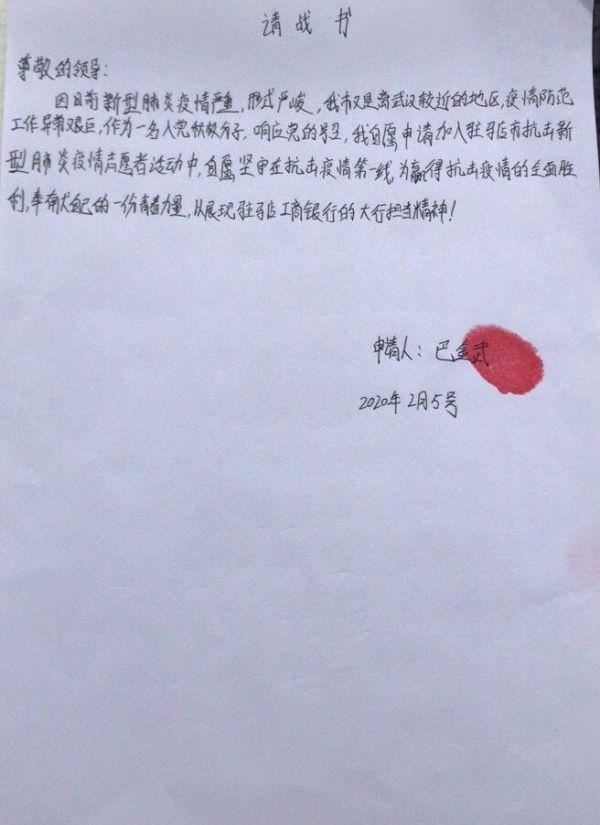 请战书
尊敬的领导:
因目前新型肺炎疫情严重,形式严峻,我市又是离武汉较近的地区,疫情防范
工作异常艰巨,作为一名入党积极分子,响应党的号召,我自愿申请加入驻马店市抗击新
型肺炎疫情志愿者活动中,自愿坚守在抗击疫情第一线,为赢得抗击疫情的全面胜
利,奉献自己的一份青春力量,从展现驻马店工商银行的大行担当精神!
申请人:巴金武
2020年2月5号